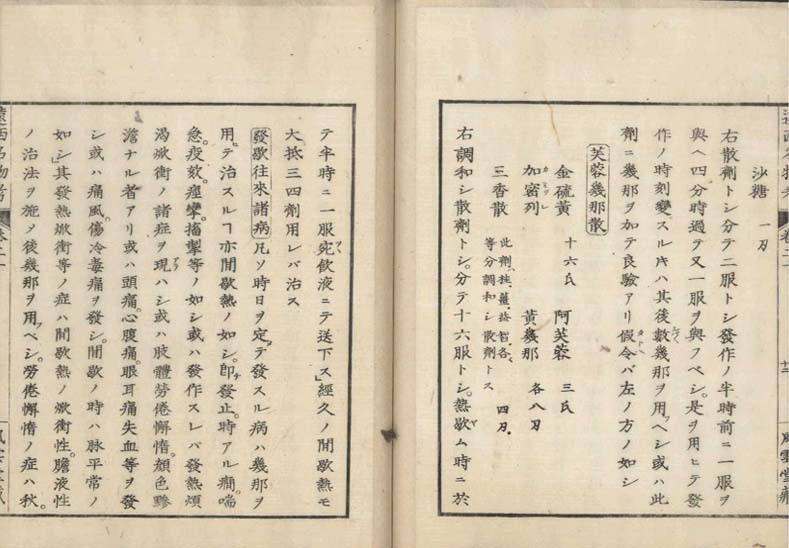 沙糖 一刀
右散劑トシ分テ二服トシ發作ノ半時前ニ一服ヲ
與ヘ四分時過テ又一服ヲ與フベシ。是ヲ用ヒテ發
作ノ時刻變スル𪜈ハ其後數幾那ヲ用フヘシ或ハ此
劑ニ幾那ヲ加テ良驗アリ假令バ左ノ方ノ如シ
芙蓉幾那散
金硫黄 十六氏 阿芙蓉 三氏
加密列 黄幾那 各八刀
三香散 此劑、桂、薑、益智、各
等分調和シ散劑トス 四刀
右調和シ散劑トシ。分テ十六服トシ。熱歇ム時ニ於
テ半時ニ一服宛飲液ニテ送下ス」經久ノ間歇熱モ
大抵三四劑用レバ治ス
發歇往來諸病 凡ソ時日ヲ定テ發スル病ハ幾那ヲ
用テ治スルヿ亦間歇熱ノ如シ。即發止。時アル癇。喘
急。疫欬。痙攣。搐掣等ノ如シ或ハ發作スレバ發熱煩
渴焮衝ノ諸症ヲ現ハシ或ハ肢體勞倦懈惰。顔色黲
澹ナル者アリ或ハ頭痛。心腹痛。眼耳痛失血等ヲ發
シ或ハ痛風。傷冷毒痛ヲ發シ。間歇ノ時ハ脉平常ノ
如シ」其發熱焮衝等ノ症ハ間歇熱ノ焮衝性。膽液性
ノ治法ヲ施メ後幾那ヲ用ベシ。勞倦懈惰ノ症ハ秋。
遠西名物考
卷二
十二
風雲堂藏